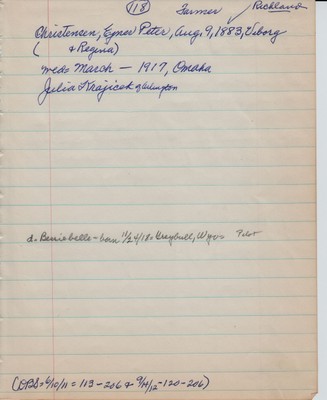 118 Farmer Richland
Christensen, Ejner Peter, Aug. 9, 1883, Viborg
( & Regina)
meds March — 1917, Omaha
Julia Krajicek of Arlington
d. Berniebelle - born 11/24/18 Greybull, Wyos Pilot
(DBS = 6/10/11 = 119-206 & 9/14/12-120-206)